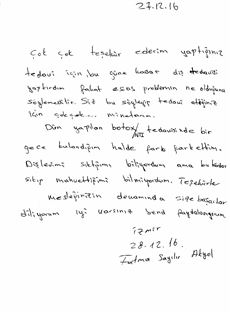 27.12.16
Çok çok teşekür ederim yaptığınız
tedavi için, bu güne kadar diş tedavisi
yaptırdım fakat esas problemin ne olduğunu
söylememiştir. Siz bu söyleyip tedavi ettiğiniz
için çok çok... minetarım.
Dün yapılan botox/ tedavisinde bir
gece kullandığım halde fark farkettim.
Dişlerimi sıktığımı biliyordum ama bu kadar
sıkıp mahvettiğimi bilmiyordum. Teşekürler
mesleğinizin devamında size başarılar
diliyorum iyi varsınız bend faydalanıyorum
İzmir
28.12.16.
Fatma Akyol